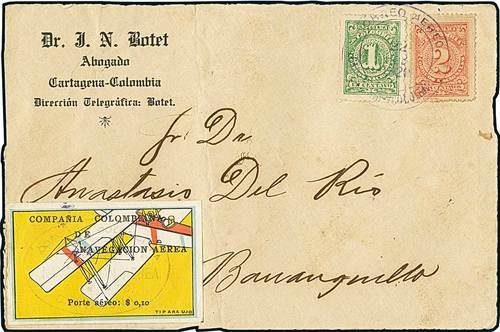 Dr. J. N. Botet
Abogado
Cartagena-Colombia
Dirección Telegráfica: Botet.
CORREO AEREO
1
UN CENTAVO
2
Sr. Dr.
Anastasio Del Río
Barranquilla
COMPAÑIA COLOMBIANA
DE
NAVEGACION AEREA
Porte aéreo: $ 0,10